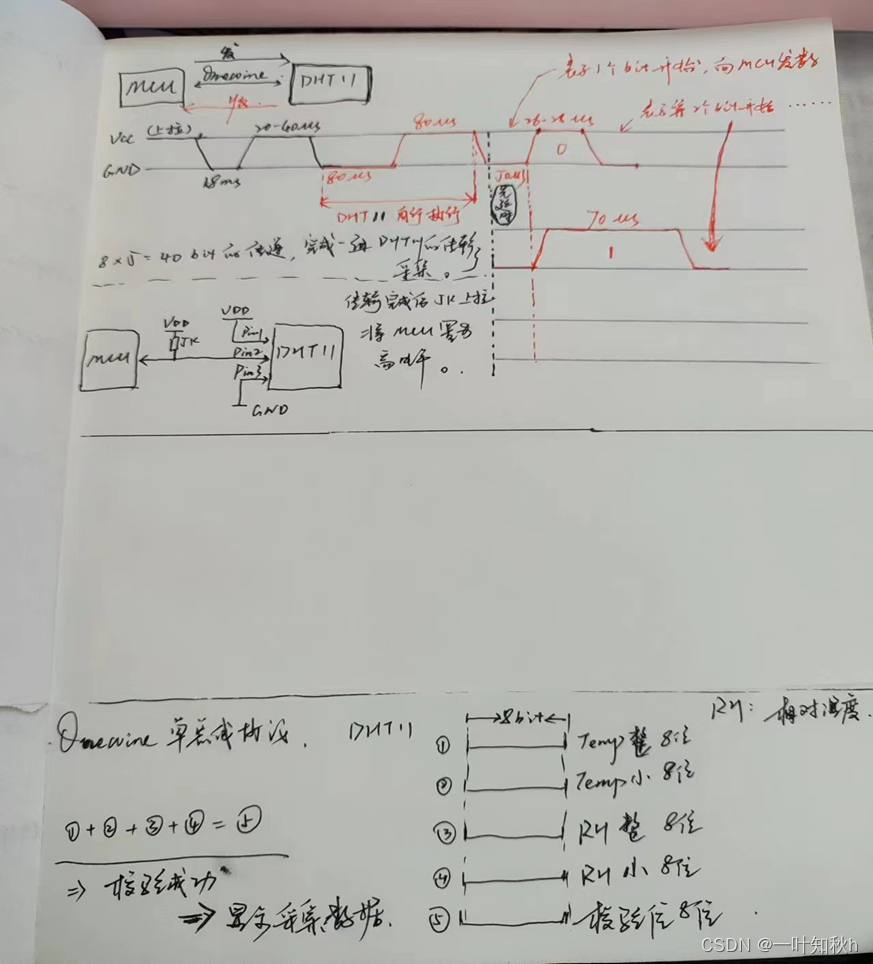 发
MCU Onewire DHT11
收
表示1个bit开始,向MCU发数
表示第2个bit开始 ……
VCC (上拉) 20-40us 80us 26-28us
0
GND 18ms 80us 50us
DHT11 自行执行
70us
1
8×5=40bit的传送,完成一通DHT11的传输
采集。
传输完成后 5K上拉
将MCU置为
高电平。
VDD
VDD
5K
Pin1
MCU Pin2 DHT11
Pin3
GND
RH: 相对湿度.
Onewire 单总线协议. DHT11
8bit
① Temp 整 8位
② Temp 小 8位
①+②+③+④=⑤
③ RH 整 8位
④ RH 小 8位
⇒ 校验成功
⇒ 显示采集数据.
⑤ 校验位 8位.
CSDN @一叶知秋h